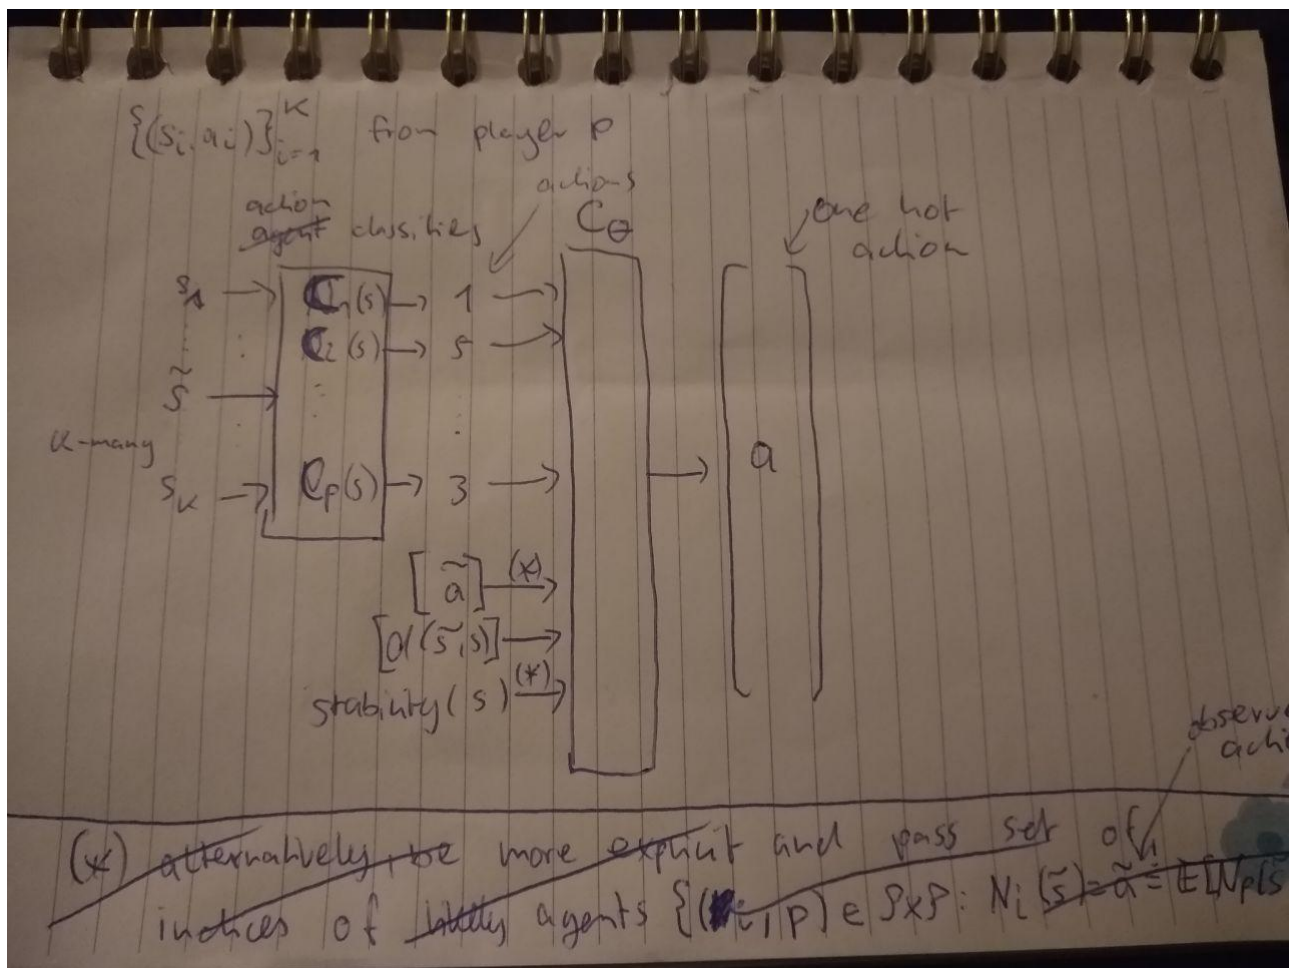 {(s_i, a_i)}_{i=1}^K from player p
actions
action
agent classifies
C_θ
one hot
action
s_1 → C_1(s) → 1 →
C_2(s) → 5 →
s̃ →
K-many
s_K → C_p(s) → 3 → → a
[ã] (*) →
[d(s̃,s)] →
stability(s) (*) →
(*) alternatively, be more explicit and pass set of
indices of agents {(i, p) ∈ P×P : N_i(s̃) = ã = E[N_p(s̃